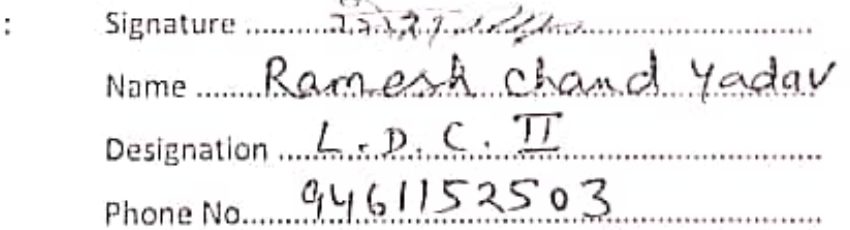 : Signature ..........................................
Name ........Ramesh chand Yadav
Designation .....L.D.C. II..........................
Phone No.......9461152503..........................